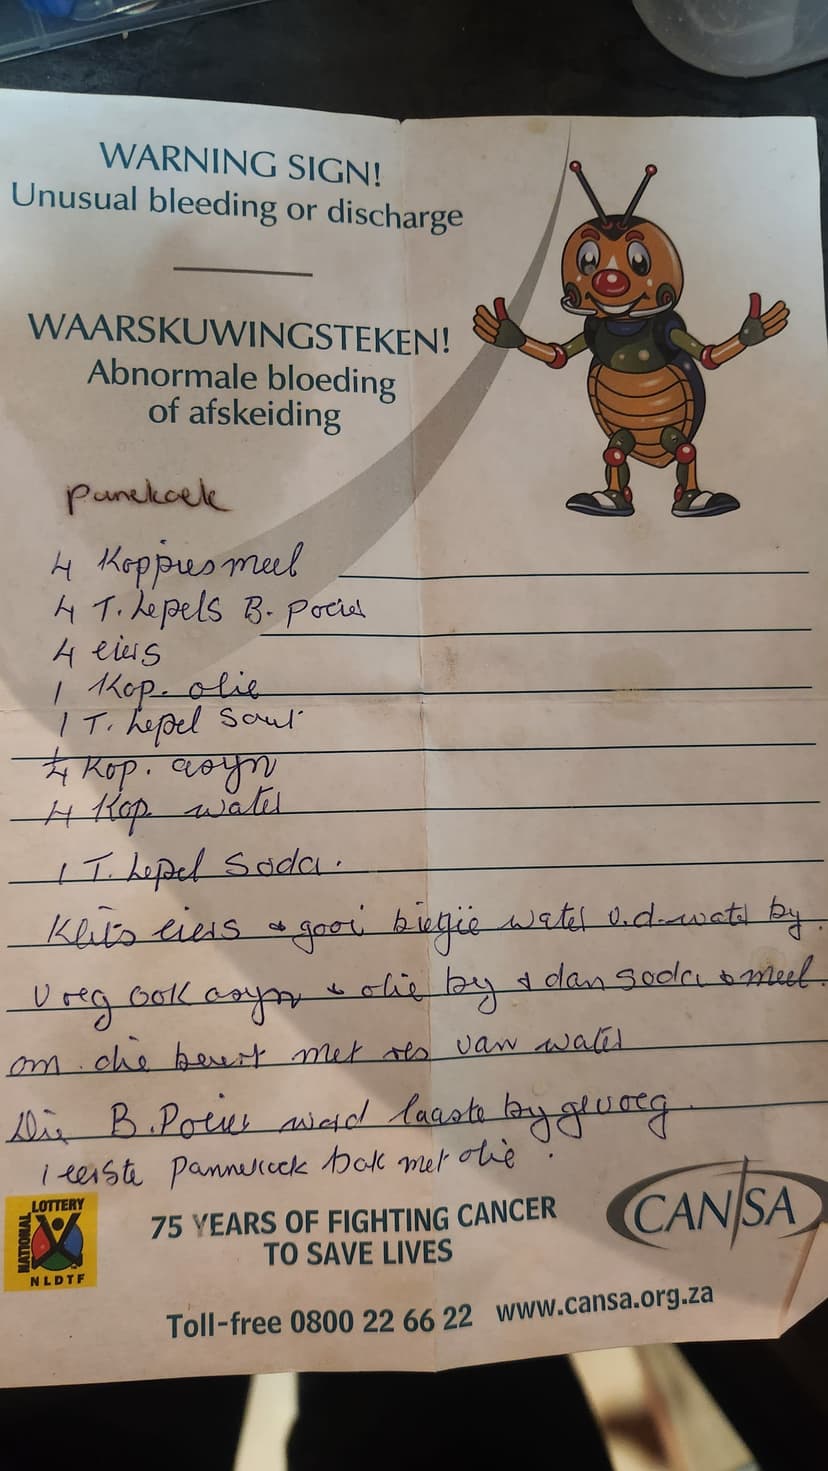 WARNING SIGN!
Unusual bleeding or discharge
WAARSKUWINGSTEKEN!
Abnormale bloeding
of afskeiding
panekoek
4 Koppies meel
4 T. Lepels B. Poeier
4 eiers
1 Kop. olie
1 T. Lepel Sout
¼ Kop. asyn
4 Kop water
1 T. Lepel Soda.
Klits eiers & gooi bietjie water v.d. water by.
Voeg ook asyn & olie by & dan soda & meel.
om die beurt met res van water
Die B. Poeier word laaste bygevoeg.
1 eerste pannekoek bak met olie.
NATIONAL LOTTERY
NLDTF
75 YEARS OF FIGHTING CANCER
TO SAVE LIVES
CANSA
Toll-free 0800 22 66 22 www.cansa.org.za